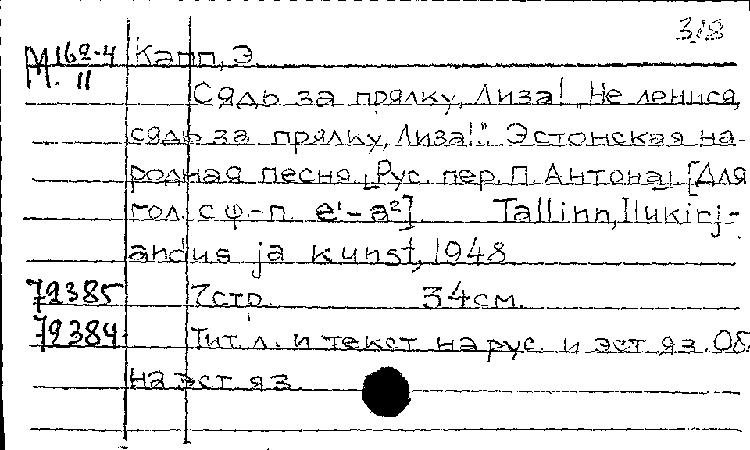 318
М162-4 Капп, Э.
М. II
Сядь за прялку, Лиза! „Не ленися,
сядь за прялку, Лиза!". Эстонская на-
родная песня. [Рус. пер. П. Антона]. [Для
гол. с ф-п. e¹-a²]. Tallinn, Ilukirj-
andus ja kunst, 1948
79385 7стр. 34см.
79384 Тит. л. и текст на рус. и эст. яз. Об.
на эст. яз.